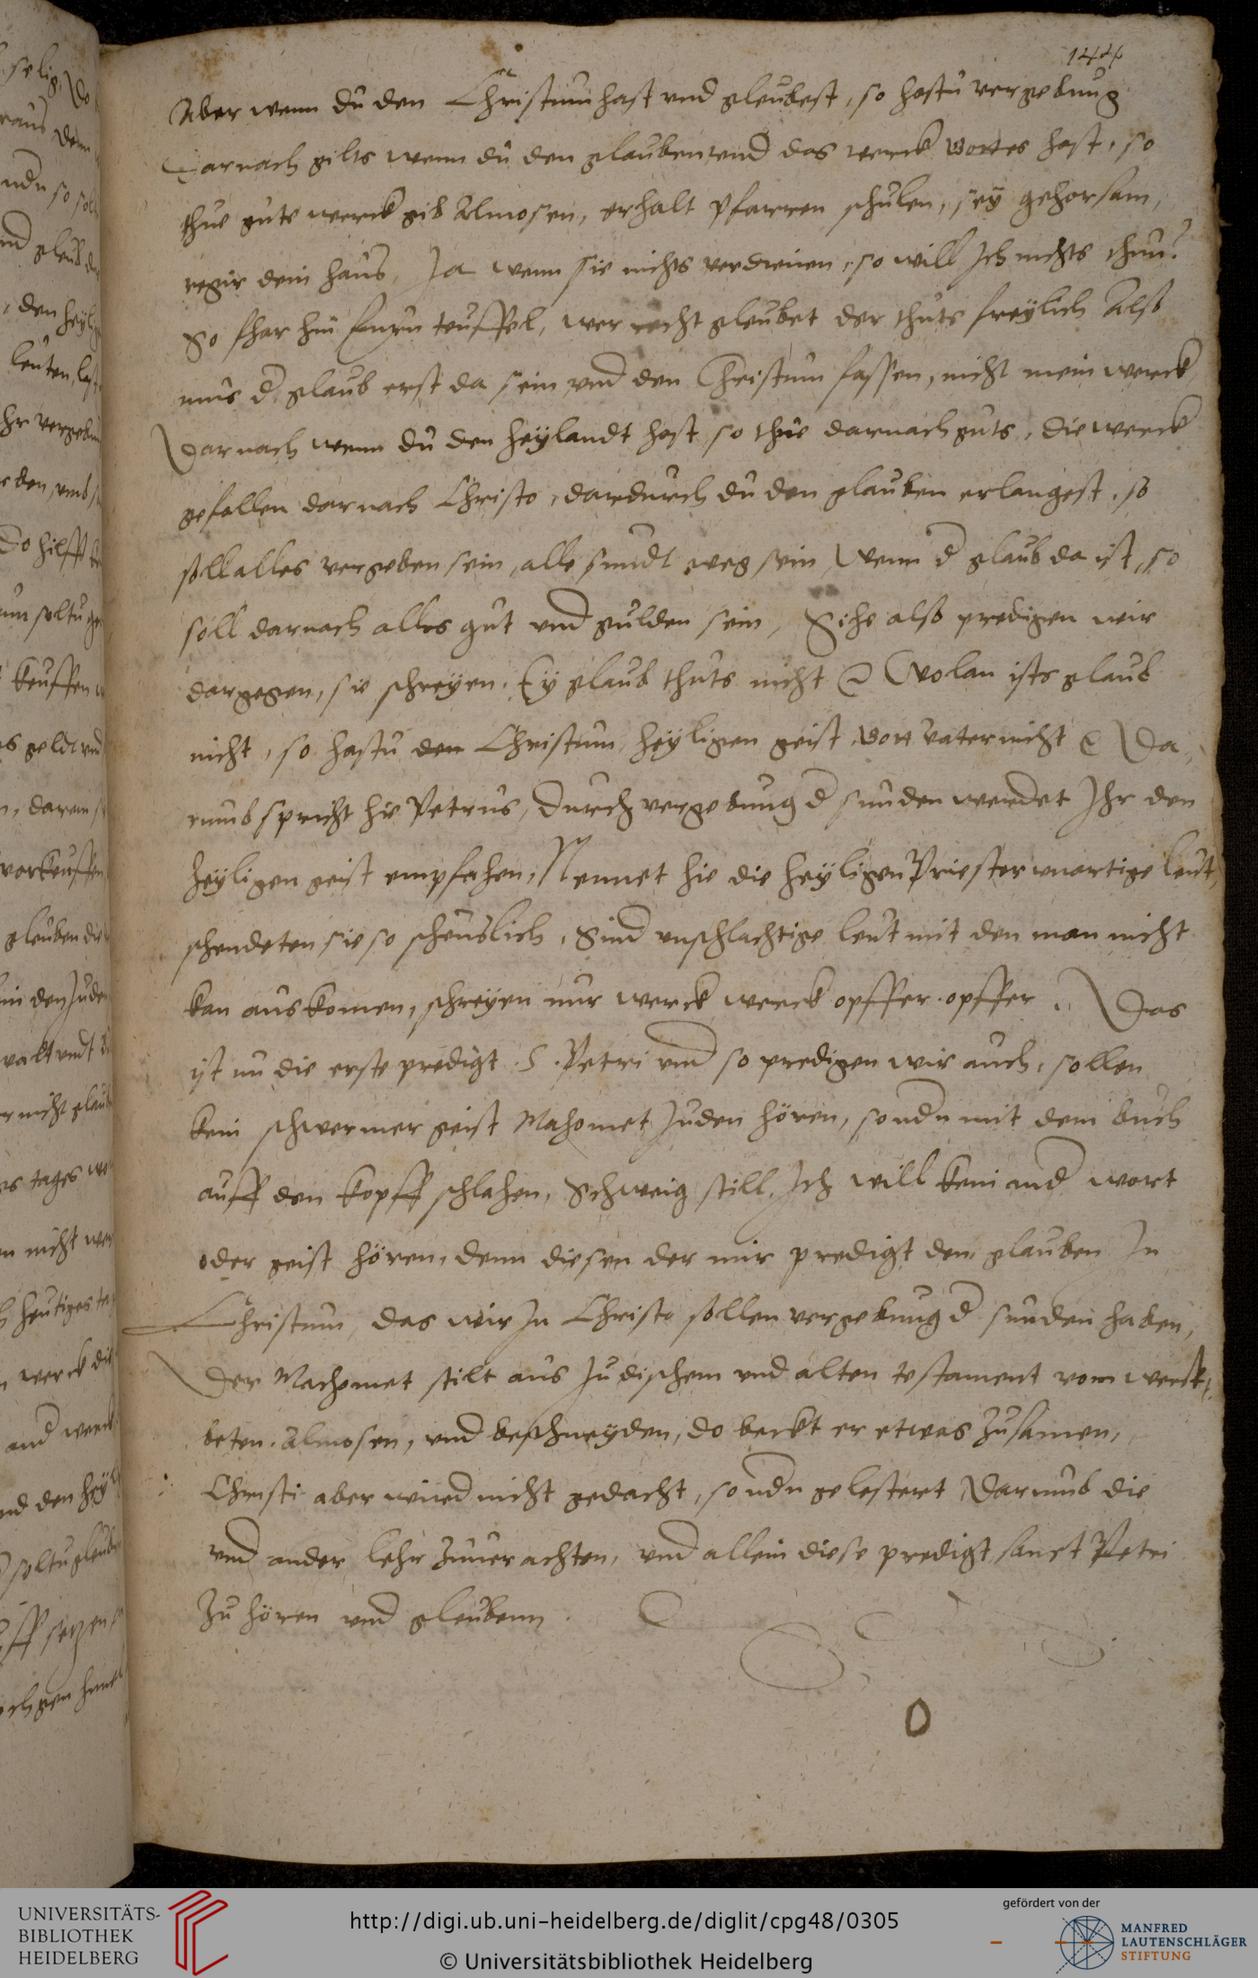 144
Aber wenn du den Christum hast vnd gleubest, so hastu vergebung
Darnach gilts wenn du den glauben vnd das werck Gottes hast, so
thue gute werck gib Almosen, erhalt Pfarren schulen, sey gehorsam,
regir dein haus, Ja wenn sie nichts verdienen, so will Ich nichts thun?
So fhar hin ins teuffel, wer recht gleubet der thuts freylich Also
mus d glaub erst da sein vnd den Christum fassen, nicht mein werck
Darnach wenn du den heylandt hast so thue darnach guts, die werck
gefallen darnach Christo, dardurch du den glauben erlangest, so
soll alles vergeben sein, alle sundt weg sein, Wenn d glaub da ist, so
soll darnach alles gut vnd gulden sein, Sihe also predigen wir
dargegen, sie schreyen. Ey glaub thuts nicht Wolan ists glaub
nicht, so hastu den Christum, heyligen geist, Gott vater nicht Da
rumb spricht hie Petrus, Durch vergebung d sunden werdet Ihr den
heyligen geist empfahen, Nennet hie die heyligen Priester vnartige leut,
schendeten sie so scheuslich, Sind vnschlachtige leut mit den man nicht
kan auskomen, schreyen nur werck werck opffer opffer. Das
ist nu die erste predigt S. Petri vnd so predigen wir auch, sollen
kein schwermer geist Mahomet Juden hören, sondn mit dem buch
auff den kopff schlahen, Schweig still, Ich will kein and wort
oder geist hören, denn diesen der mir predigt den glauben In
Christum, das wir In Christo sollen vergebung d sunden haben,
Der Machomet stilt aus Judischem vnd alten testament vom werck,
beten, Almosen, vnd beschneyden, do backt er etwas zusamen,
Christi aber wird nicht gedacht, sondn gelestert Darumb die
vnd ander lehr zuuerachten, vnd allein diese predigt sanct Petri
zu hören vnd gleubenn.
UNIVERSITÄTS-
BIBLIOTHEK
HEIDELBERG
http://digi.ub.uni-heidelberg.de/diglit/cpg48/0305
© Universitätsbibliothek Heidelberg
gefördert von der
MANFRED
LAUTENSCHLÄGER
STIFTUNG